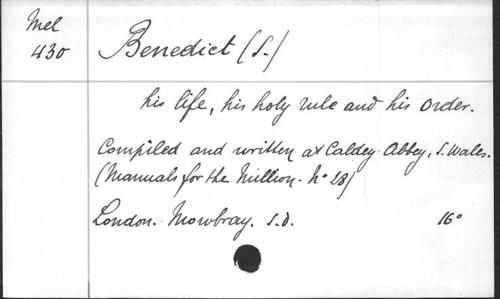 Mel
430
Benedict (S.)
his life, his holy rule and his order.
Compiled and written at Caldey Abbey, S. Wales.
(Manuals for the Million. No 28)
London. Mowbray. S.D. 16°